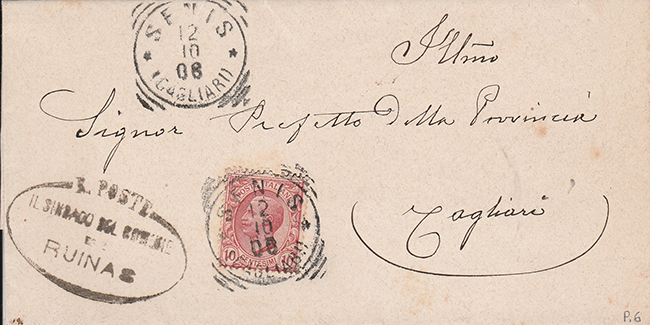 SENIS
12
10
08
(CAGLIARI)
Illmo
Signor Prefetto Della Provincia
Cagliari
R. POSTE
IL SINDACO DEL COMUNE
DI
RUINAS
POSTE ITALIANE
10 CENTESIMI
SENIS
12
10
08
(CAGLIARI)
P.6